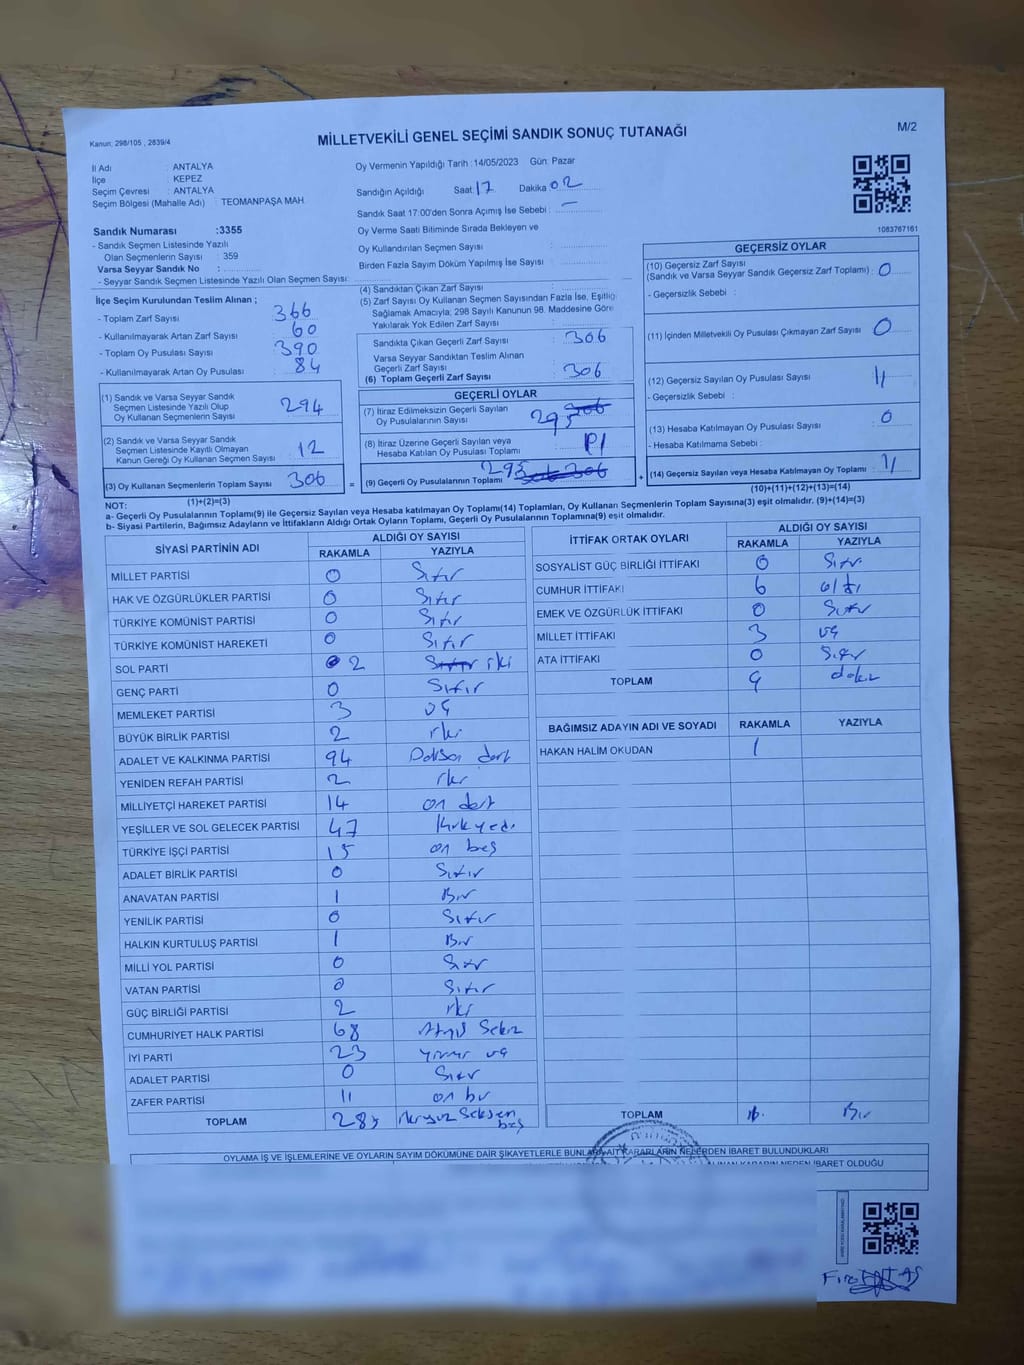 MİLLETVEKİLİ GENEL SEÇİMİ SANDIK SONUÇ TUTANAĞI
M/2
Kanun: 298/105 , 2839/4
İl Adı : ANTALYA
İlçe : KEPEZ
Seçim Çevresi : ANTALYA
Seçim Bölgesi (Mahalle Adı) : TEOMANPAŞA MAH.
Sandık Numarası :3355
- Sandık Seçmen Listesinde Yazılı
Olan Seçmenlerin Sayısı : 359
Varsa Seyyar Sandık No :
- Seyyar Sandık Seçmen Listesinde Yazılı Olan Seçmen Sayısı:
İlçe Seçim Kurulundan Teslim Alınan ;
- Toplam Zarf Sayısı : 366
- Kullanılmayarak Artan Zarf Sayısı : 60
- Toplam Oy Pusulası Sayısı : 390
- Kullanılmayarak Artan Oy Pusulası : 84
(1) Sandık ve Varsa Seyyar Sandık
Seçmen Listesinde Yazılı Olup
Oy Kullanan Seçmenlerin Sayısı : 294
(2) Sandık ve Varsa Seyyar Sandık
Seçmen Listesinde Kayıtlı Olmayan
Kanun Gereği Oy Kullanan Seçmen Sayısı : 12
(3) Oy Kullanan Seçmenlerin Toplam Sayısı : 306
(1)+(2)=(3)
Oy Vermenin Yapıldığı Tarih :14/05/2023 Gün: Pazar
Sandığın Açıldığı Saat: 17 Dakika 02
Sandık Saat 17:00'den Sonra Açımış İse Sebebi : –
Oy Verme Saati Bitiminde Sırada Bekleyen ve
Oy Kullandırılan Seçmen Sayısı :
Birden Fazla Sayım Döküm Yapılmış İse Sayısı :
(4) Sandıktan Çıkan Zarf Sayısı :
(5) Zarf Sayısı Oy Kullanan Seçmen Sayısından Fazla İse, Eşitliği
Sağlamak Amacıyla; 298 Sayılı Kanunun 98. Maddesine Göre
Yakılarak Yok Edilen Zarf Sayısı :
Sandıkta Çıkan Geçerli Zarf Sayısı : 306
Varsa Seyyar Sandıktan Teslim Alınan
Geçerli Zarf Sayısı :
(6) Toplam Geçerli Zarf Sayısı 306
GEÇERLİ OYLAR
(7) İtiraz Edilmeksizin Geçerli Sayılan
Oy Pusulalarının Sayısı: 295 306
(8) İtiraz Üzerine Geçerli Sayılan veya
Hesaba Katılan Oy Pusulası Toplamı :
= (9) Geçerli Oy Pusulalarının Toplamı : 295 306
+
1083767161
GEÇERSİZ OYLAR
(10) Geçersiz Zarf Sayısı
(Sandık ve Varsa Seyyar Sandık Geçersiz Zarf Toplamı) : 0
- Geçersizlik Sebebi :
(11) İçinden Milletvekili Oy Pusulası Çıkmayan Zarf Sayısı : 0
(12) Geçersiz Sayılan Oy Pusulası Sayısı : 11
- Geçersizlik Sebebi :
(13) Hesaba Katılmayan Oy Pusulası Sayısı : 0
- Hesaba Katılmama Sebebi :
(14) Geçersiz Sayılan veya Hesaba Katılmayan Oy Toplamı : 11
(10)+(11)+(12)+(13)=(14)
NOT:
a- Geçerli Oy Pusulalarının Toplamı(9) ile Geçersiz Sayılan veya Hesaba katılmayan Oy Toplamı(14) Toplamları, Oy Kullanan Seçmenlerin Toplam Sayısına(3) eşit olmalıdır. (9)+(14)=(3)
b- Siyasi Partilerin, Bağımsız Adayların ve İttifakların Aldığı Ortak Oyların Toplamı, Geçerli Oy Pusulalarının Toplamına(9) eşit olmalıdır.
SİYASİ PARTİNİN ADI ALDIĞI OY SAYISI
RAKAMLA YAZIYLA
MİLLET PARTİSİ 0 Sıfır
HAK VE ÖZGÜRLÜKLER PARTİSİ 0 Sıfır
TÜRKİYE KOMÜNİST PARTİSİ 0 Sıfır
TÜRKİYE KOMÜNİST HAREKETİ 0 Sıfır
SOL PARTİ 0 2 Sıfır iki
GENÇ PARTİ 0 Sıfır
MEMLEKET PARTİSİ 3 üç
BÜYÜK BİRLİK PARTİSİ 2 iki
ADALET VE KALKINMA PARTİSİ 94 Doksan dört
YENİDEN REFAH PARTİSİ 2 iki
MİLLİYETÇİ HAREKET PARTİSİ 14 on dört
YEŞİLLER VE SOL GELECEK PARTİSİ 47 Kırk yedi
TÜRKİYE İŞÇİ PARTİSİ 15 on beş
ADALET BİRLİK PARTİSİ 0 Sıfır
ANAVATAN PARTİSİ 1 Bir
YENİLİK PARTİSİ 0 Sıfır
HALKIN KURTULUŞ PARTİSİ 1 Bir
MİLLİ YOL PARTİSİ 0 Sıfır
VATAN PARTİSİ 0 Sıfır
GÜÇ BİRLİĞİ PARTİSİ 2 iki
CUMHURİYET HALK PARTİSİ 68 Atmış Sekiz
İYİ PARTİ 23 yirmi üç
ADALET PARTİSİ 0 Sıfır
ZAFER PARTİSİ 11 on bir
TOPLAM 285 İkiyüz Seksen beş
İTTİFAK ORTAK OYLARI ALDIĞI OY SAYISI
RAKAMLA YAZIYLA
SOSYALİST GÜÇ BİRLİĞİ İTTİFAKI 0 Sıfır
CUMHUR İTTİFAKI 6 altı
EMEK VE ÖZGÜRLÜK İTTİFAKI 0 Sıfır
MİLLET İTTİFAKI 3 üç
ATA İTTİFAKI 0 Sıfır
TOPLAM 9 dokuz
BAĞIMSIZ ADAYIN ADI VE SOYADI RAKAMLA YAZIYLA
HAKAN HALİM OKUDAN 1
TOPLAM 1 Bir
OYLAMA İŞ VE İŞLEMLERİNE VE OYLARIN SAYIM DÖKÜMÜNE DAİR ŞİKAYETLERLE BUNLARA AİT KARARLARIN NELERDEN İBARET BULUNDUKLARI
KARARIN NEDEN İBARET OLDUĞU